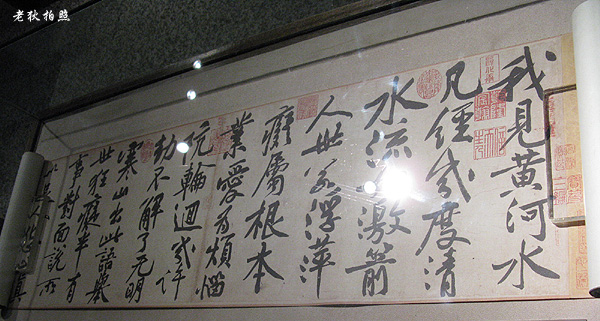 老狄拍照
我見黃河水
凡經幾度清
水流如激箭
人世若浮萍
癡屬根本
業愛為煩惱
坑輪迴幾許
劫不解了无明
寒山出此語舉
世狂癡半有
事對面說所
以
人
心真